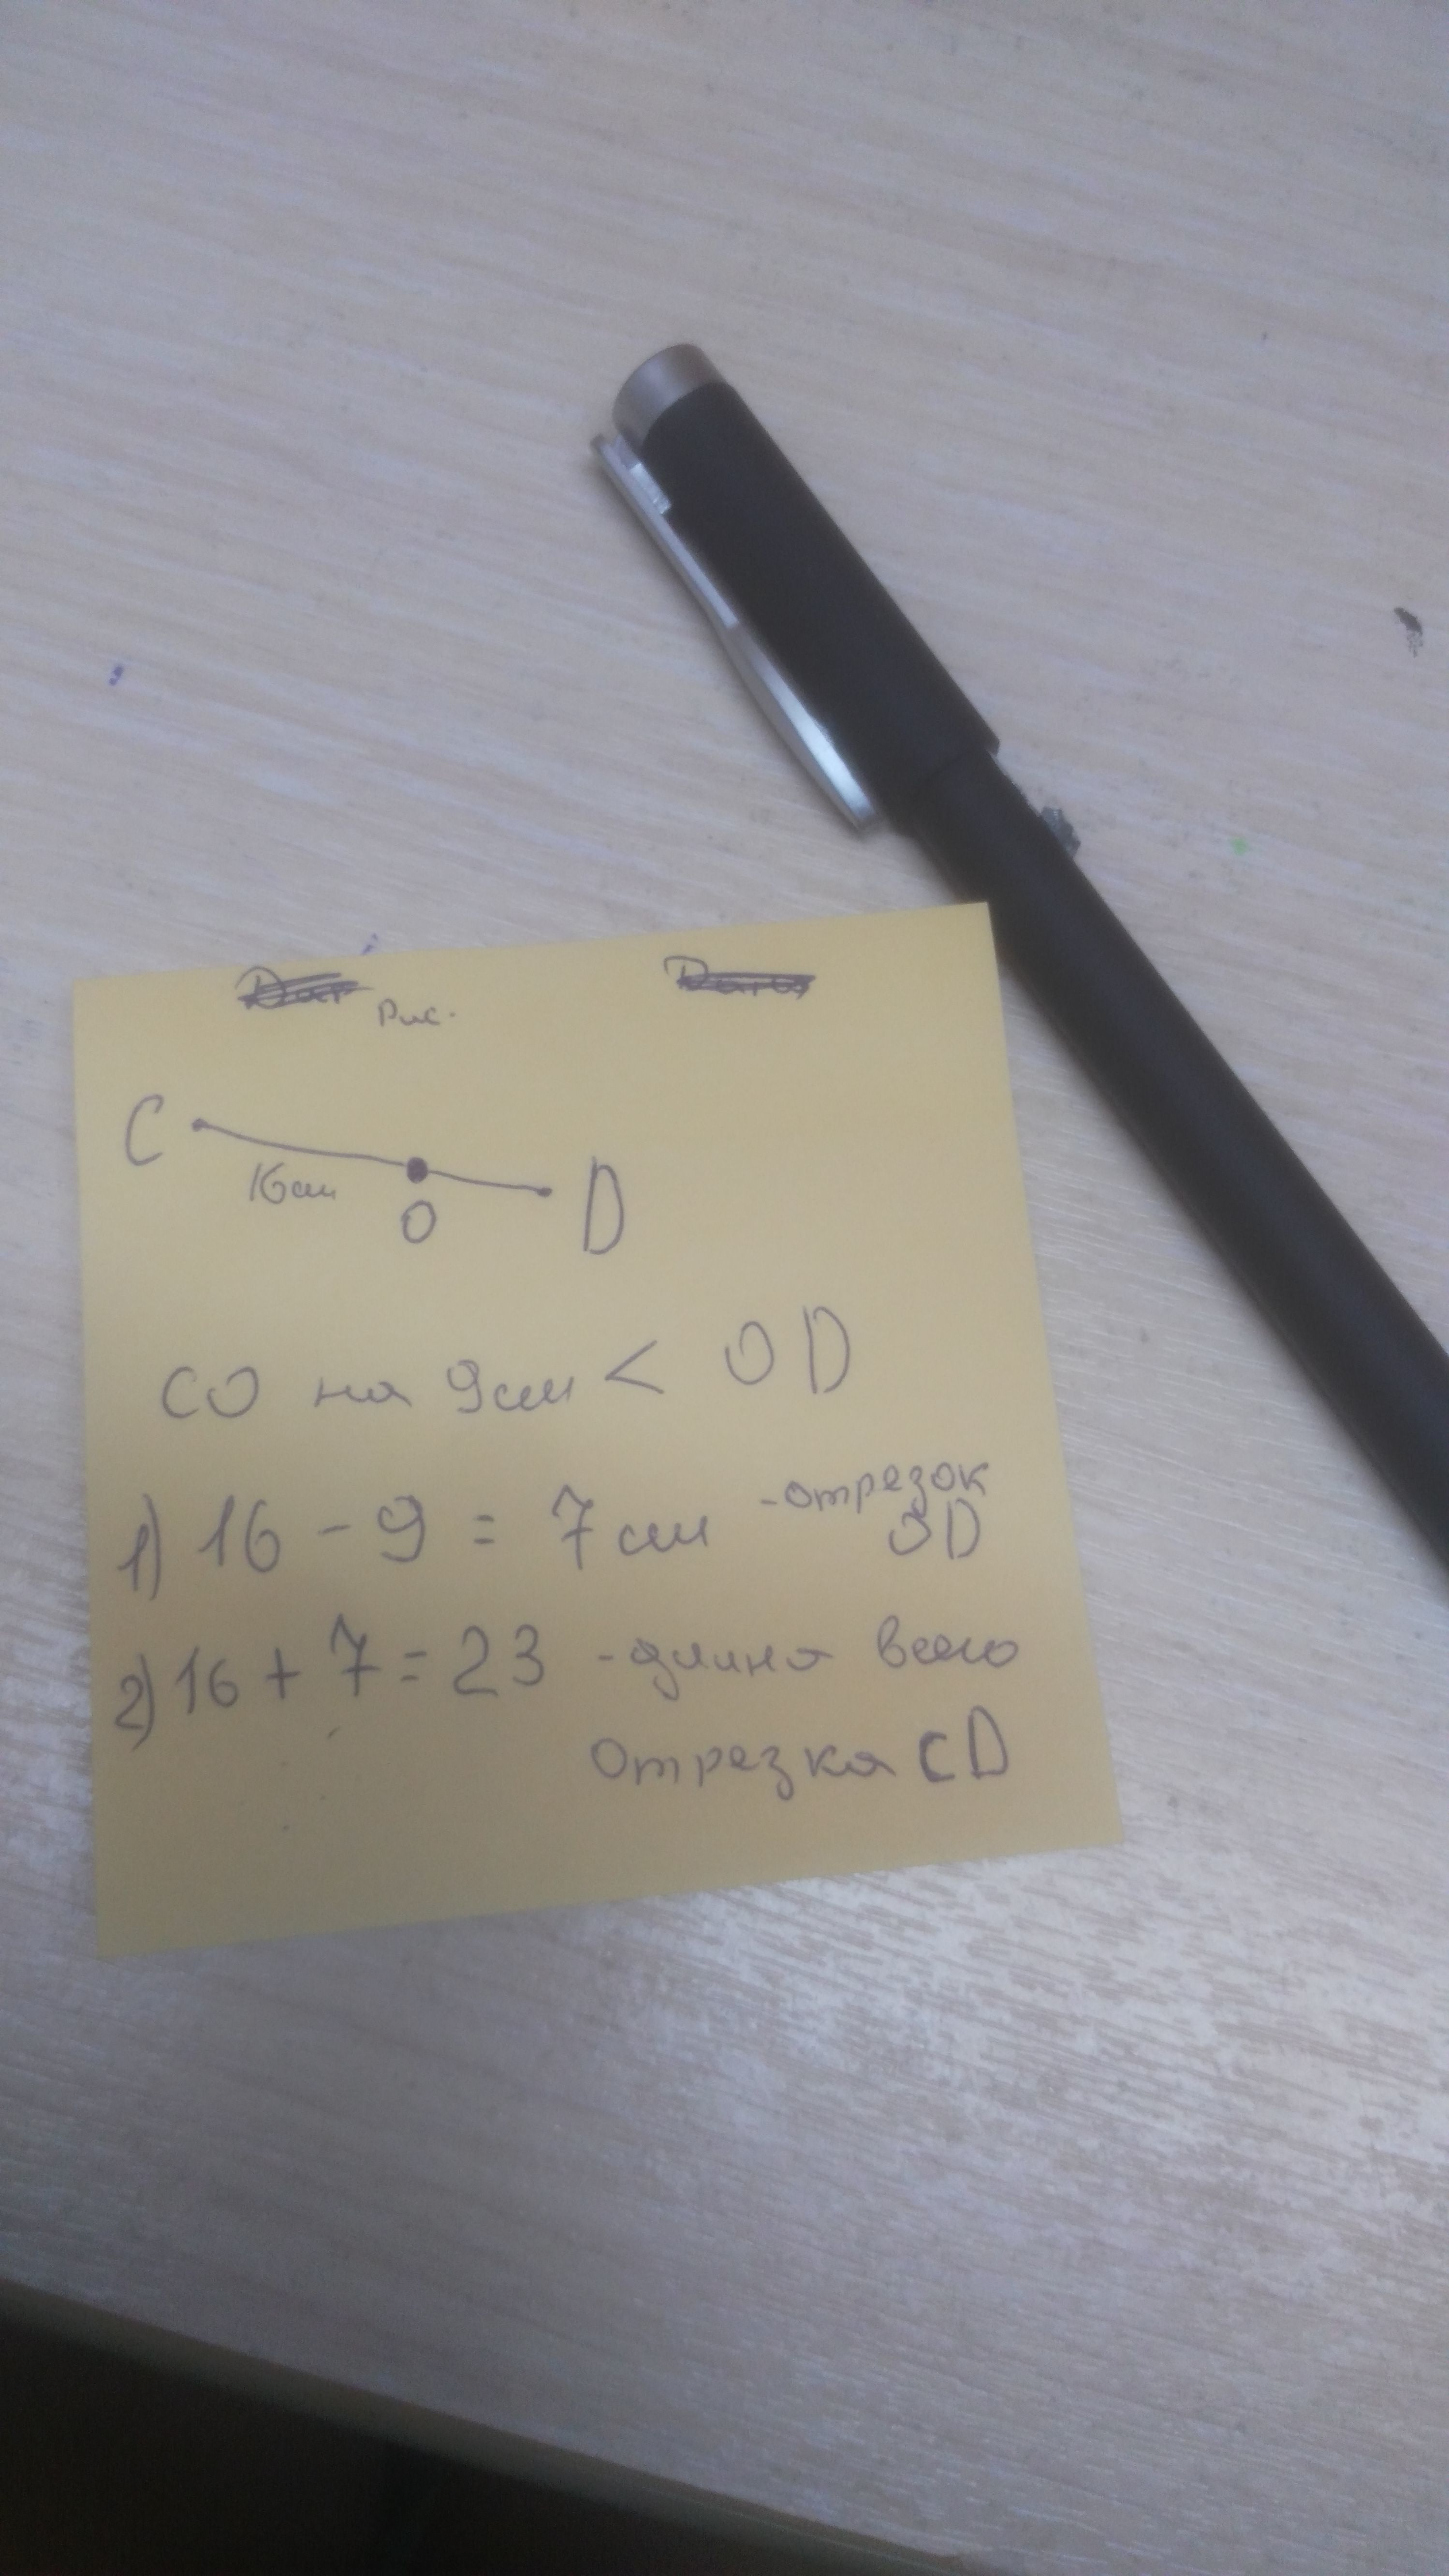 Рис.
C
16см
O
D
CO на 9см < OD
1) 16 - 9 = 7 см - отрезок
OD
2) 16 + 7 = 23 - длина всего
отрезка CD